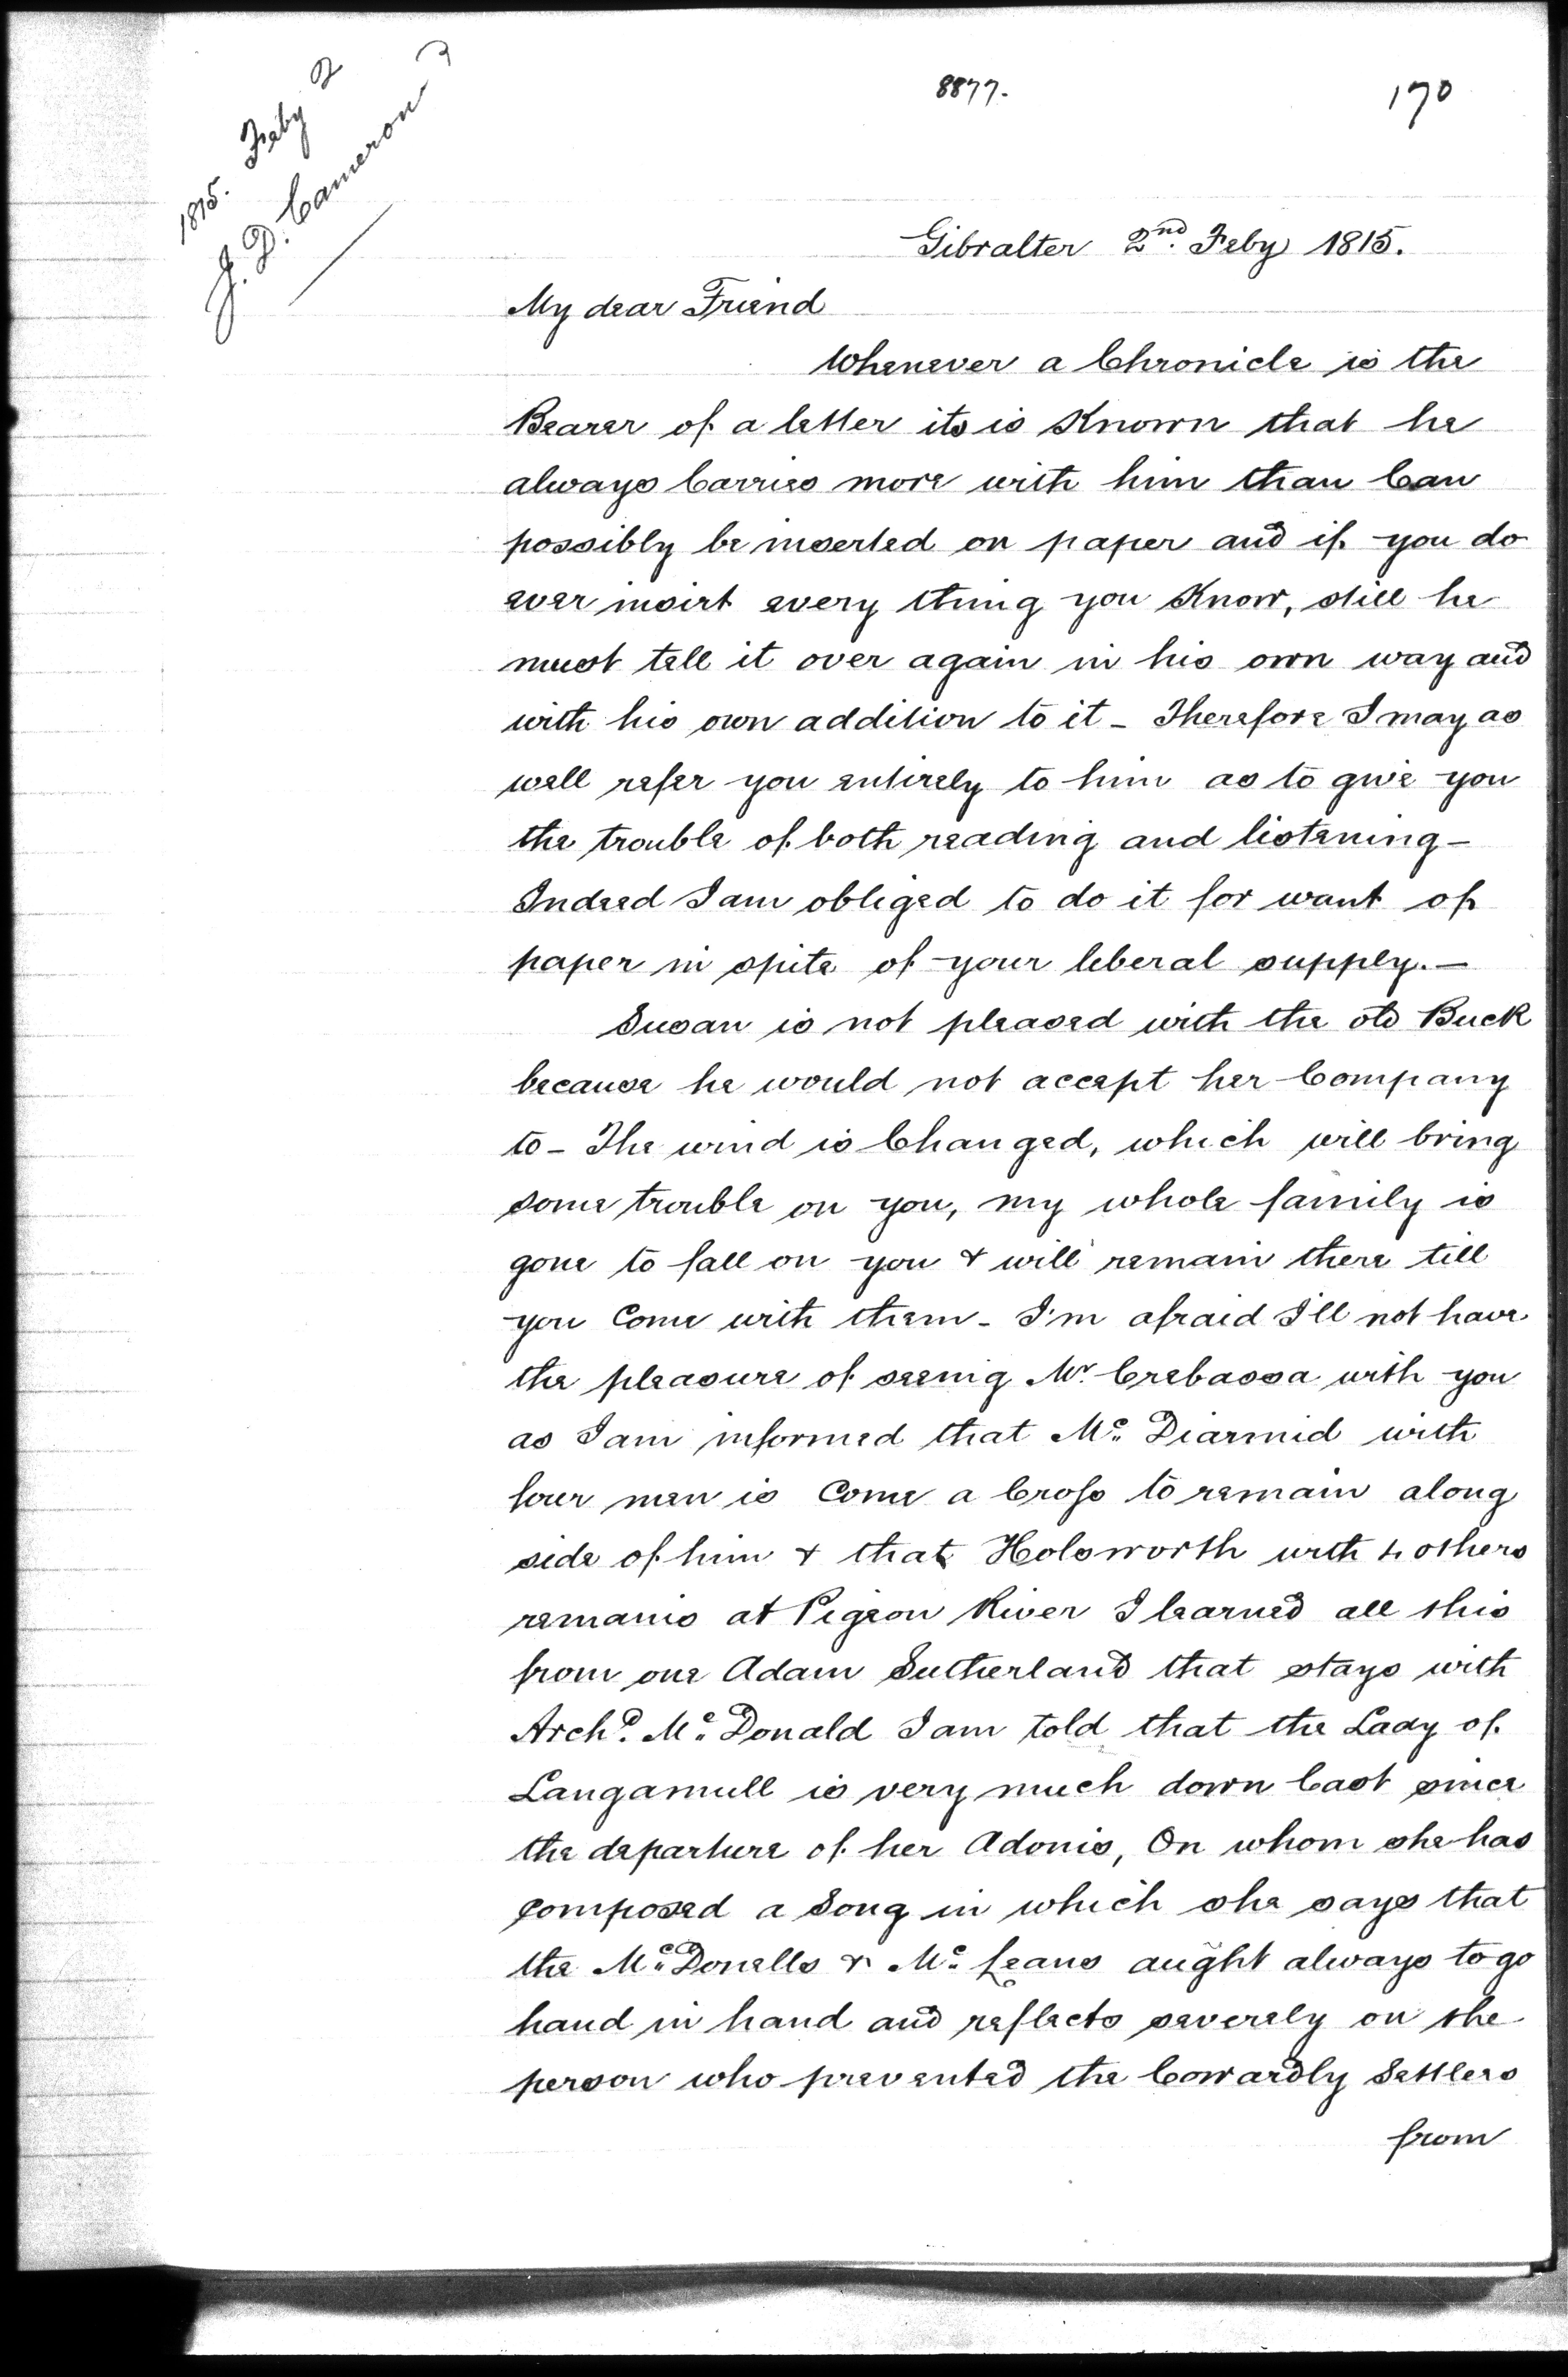 8877.
170
1815. Feby 2
J. D. Cameron
Gibralter 2nd. Feby 1815.
My dear Friend
Whenever a Chronicle is the
Bearer of a letter its is Known that he
always Carries more with him than Can
possibly be inserted on paper and if you do
ever insirt every thing you Know, still he
must tell it over again in his own way and
with his own addition to it - Therefore I may as
well refer you entirely to him as to give you
the trouble of both reading and listening -
Indeed I am obliged to do it for want of
paper in spite of your leberal supply. -
Susan is not pleased with the old Buck
because he would not accept her Company
to - The wind is Changed, which will bring
some trouble on you, my whole family is
gone to fall on you & will remain there till
you Come with them - I'm afraid I'll not have
the pleasure of seeing Mr. Crebassa with you
as I am informed that Mc. Diarmid with
four men is Come a Cross to remain along
side of him & that Holsworth with 4 others
remains at Pigeon River I learned all this
from one Adam Sutherland that stays with
Archd. Mc. Donald I am told that the Lady of
Langamull is very much down Cast since
the departure of her Adonis, On whom she has
composed a Song in which she says that
the Mc. Donells & Mc. Leans aught always to go
hand in hand and reflects severely on the
person who prevented the Cowardly Settlers
from